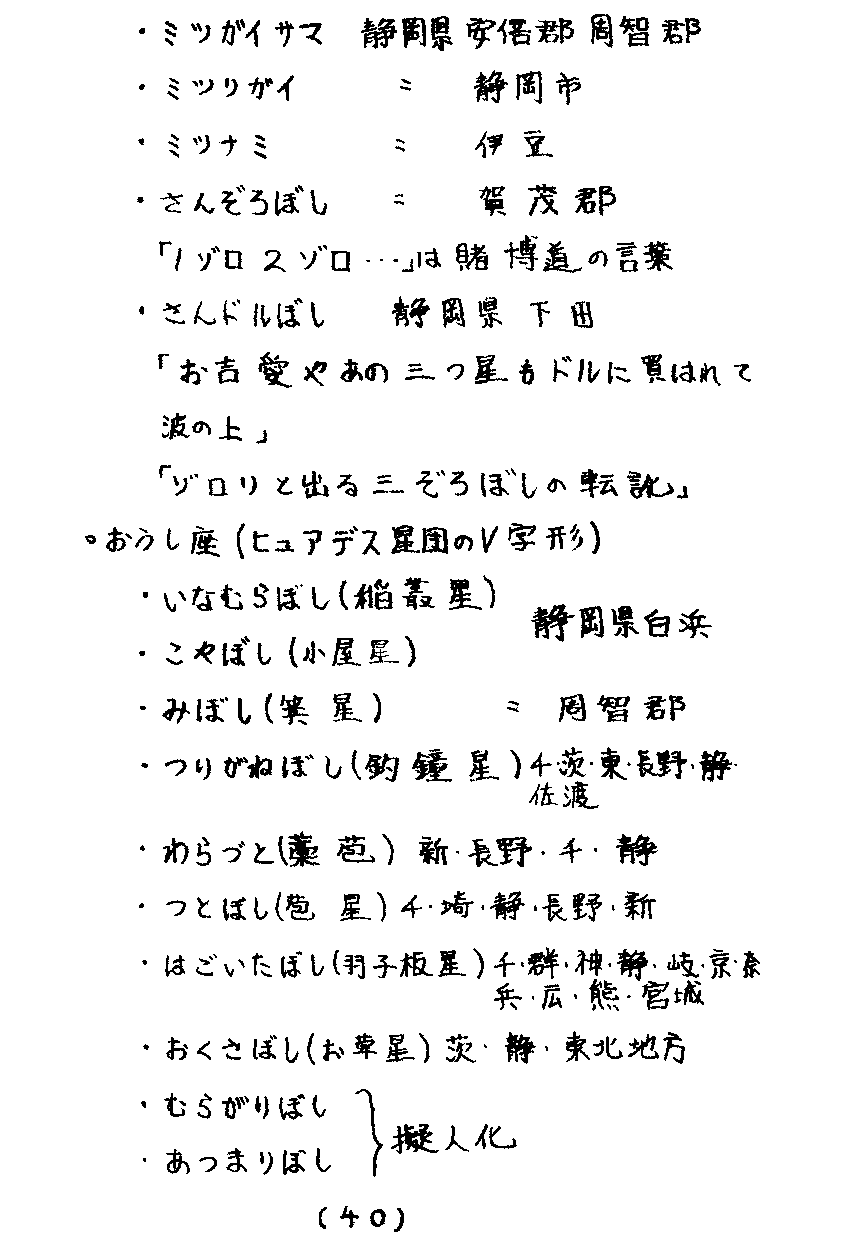 ・ミツガイサマ 静岡県安倍郡周智郡
・ミツリガイ 〃 静岡市
・ミツナミ 〃 伊豆
・さんぞろぼし 〃 賀茂郡
「1ゾロ2ゾロ…」は賭博道の言葉
・さんドルぼし 静岡県下田
「お吉愛やあの三つ星もドルに買はれて
波の上」
「ゾロリと出る三ぞろぼしの転訛」
○おうし座(ヒュアデス星団のV字形)
・いなむらぼし(稲叢星)
静岡県白浜
・こやぼし(小屋星)
・みぼし(箕星) 〃 周智郡
・つりがねぼし(釣鐘星)千・茨・東・長野・静・
佐渡
・わらづと(藁苞) 新・長野・千・静
・つとぼし(苞星)千・埼・静・長野・新
・はごいたぼし(羽子板星)千・群・神・静・岐・京・奈
兵・広・熊・宮城
・おくさぼし(お草星)茨・静・東北地方
・むらがりぼし
擬人化
・あつまりぼし
(40)